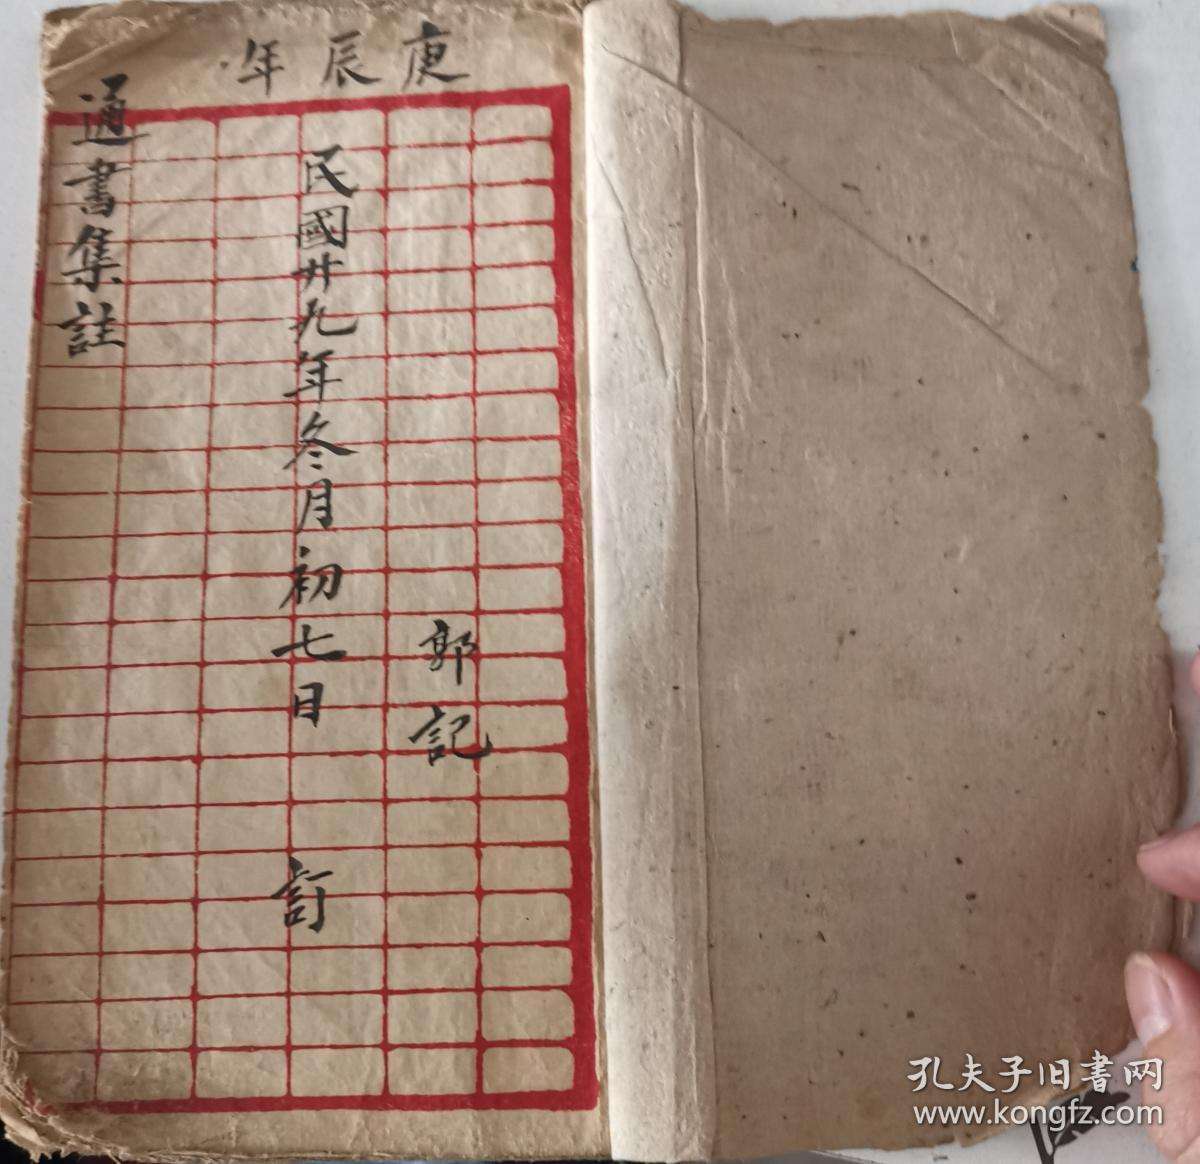 庚辰年
郭記
民國廿九年冬月初七日 訂
通書集註
孔夫子旧書网
www.kongfz.com